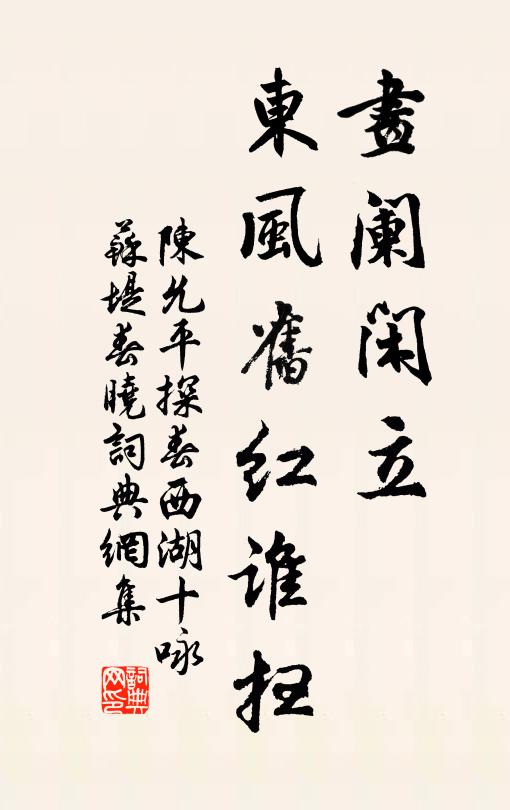 畫闌閑立
東風舊紅誰掃
陳允平探春西湖十咏
蘇堤春曉詞典網集
詞典
网印